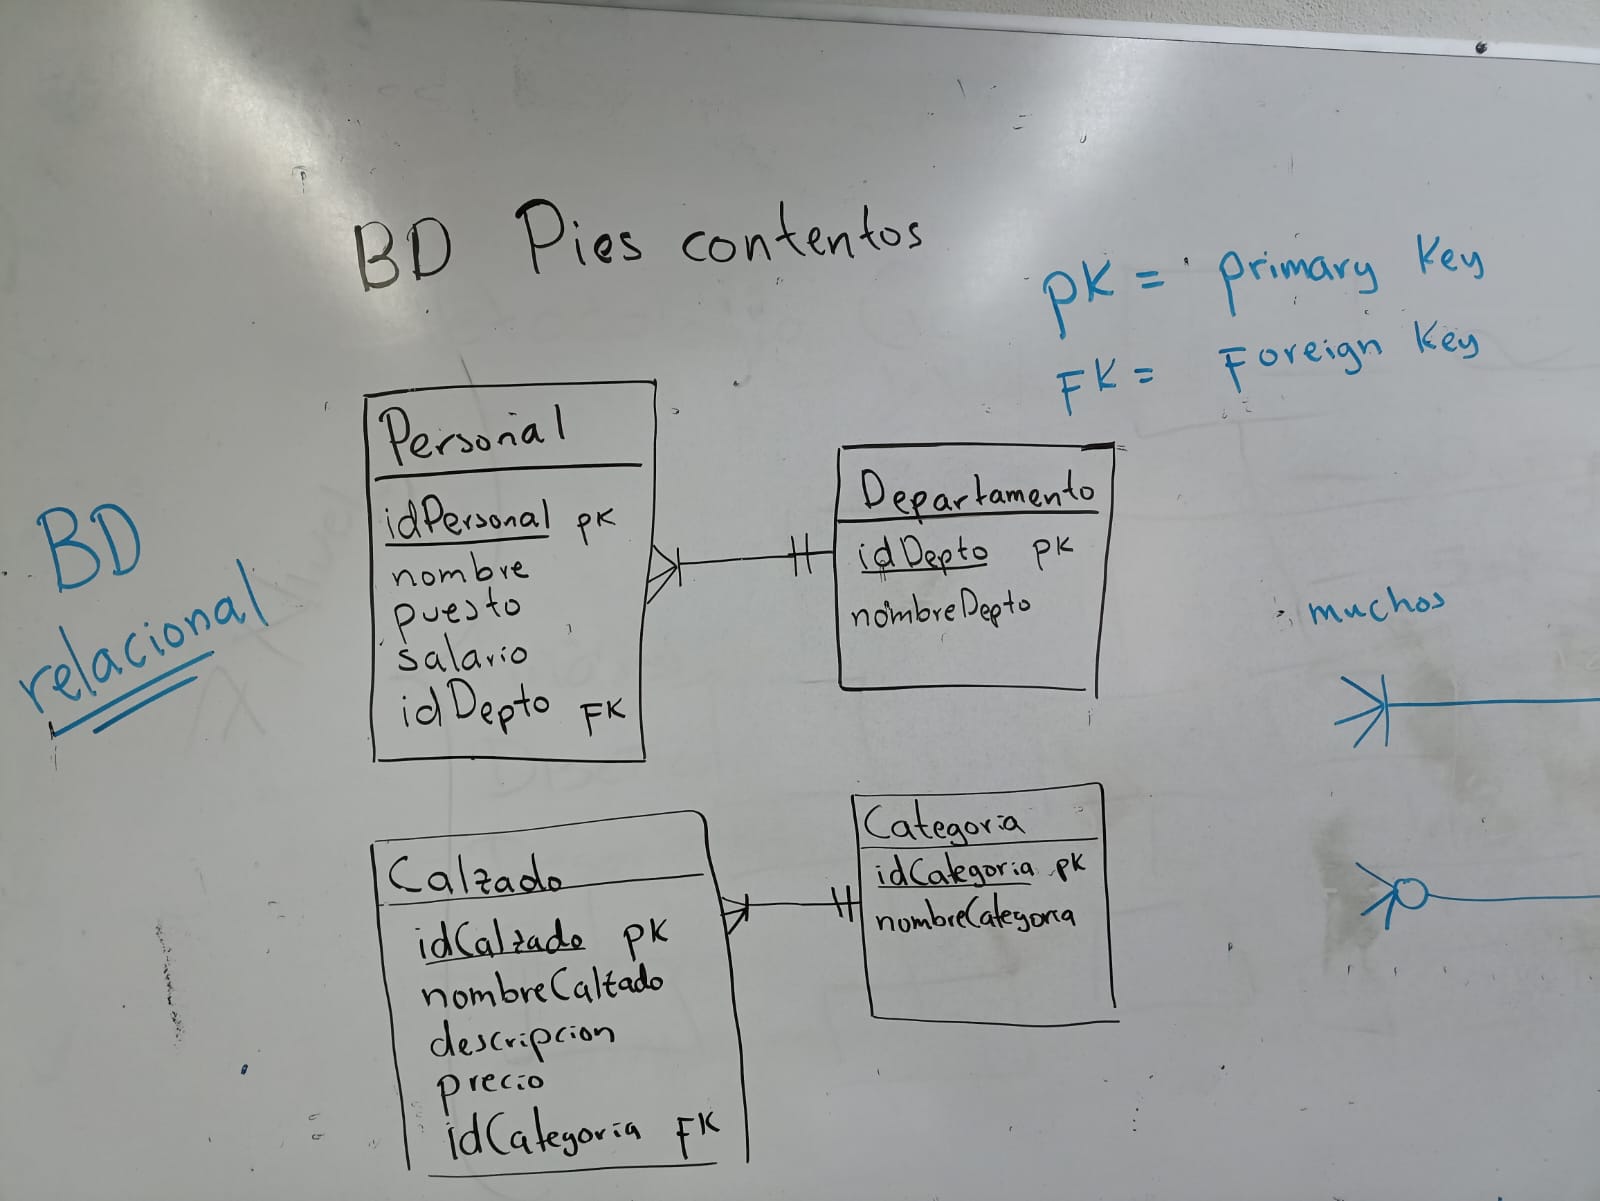 BD Pies contentos
PK = primary Key
FK = Foreign Key
BD
relacional
Personal
idPersonal PK
nombre
puesto
salario
idDepto FK
Departamento
idDepto PK
nombreDepto
muchos
Calzado
idCalzado PK
nombreCalzado
descripcion
precio
idCategoria FK
Categoria
idCategoria PK
nombreCategoria